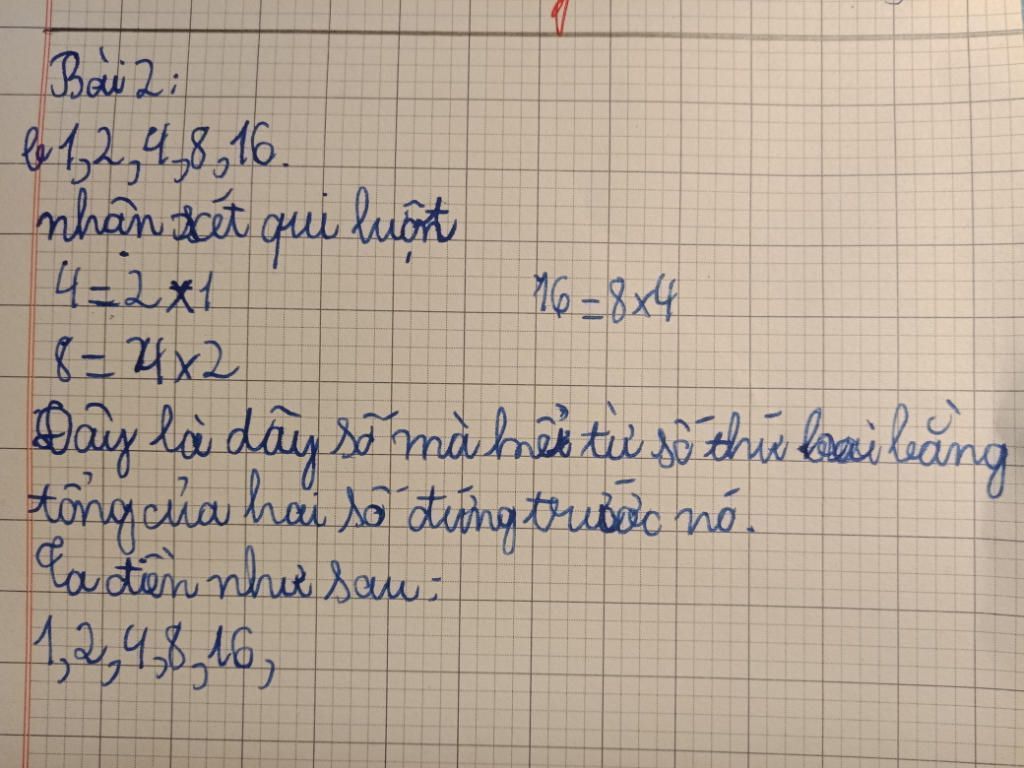 Bài 2:
b 1,2,4,8,16.
nhận xét qui luột
4 = 2 x 1 16 = 8 x 4
8 = 4 x 2
Đây là dãy số mà kể từ số thứ hai bằng
tổng của hai số đứng trước nó.
Ta điền như sau:
1,2,4,8,16,